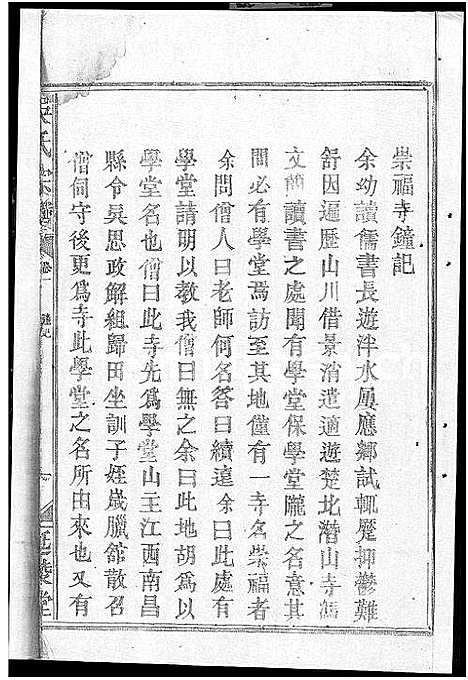 崇福寺鐘記
余幼讀儒書長遊泮水屢應鄉試輒蹷抑鬱難
舒因遍歷山川借景消遣適遊楚北潛山寺
文簡讀書之處聞有學堂保學堂隴之名意其
間必有學堂焉訪至其地僅有一寺名崇福者
余問僧人曰老師何名答曰續遠余曰此處有
學堂請明以教我僧曰無之余曰此地胡為以
學堂名也僧曰此寺先為學堂山主江西南昌
縣令吳思政解組歸田坐訓子姪歲臘舘散名
僧伺守後更為寺此學堂之名所由來也又有
氏宗譜
卷一
堂